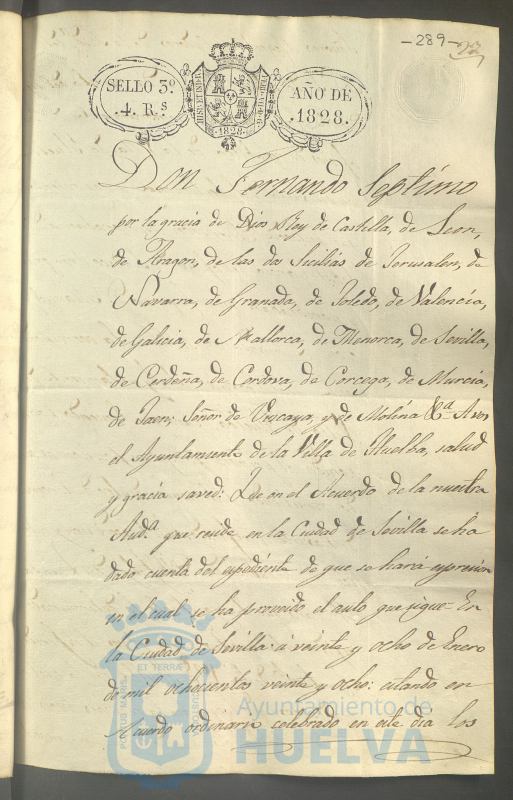 -289-
SELLO 3º
4. R.s
HISP. ET IND. R.
1828.
AÑO DE
1828.
Don Fernando Septimo
por la gracia de Dios Rey de Castilla, de Leon,
de Aragon, de las dos Sicilias de Jerusalen, de
Navarra, de Granada, de Toledo, de Valencia,
de Galicia, de Mallorca, de Menorca, de Sevilla,
de Cerdeña, de Cordova, de Corcega, de Murcia,
de Jaen, Señor de Vizcaya, y de Molina &a. A vos
el Ayuntamiento de la Villa de Huelba, salud
y gracia saved: Que en el Acuerdo de la nuestra
Auda. que reside en la Ciudad de Sevilla se ha
dado cuenta del espediente de que se hará espresion
en el cual se ha proveido el auto que sigue= En
la Ciudad de Sevilla á veinte y ocho de Enero
de mil ochocientos veinte y ocho: estando en
Acuerdo ordinario celebrado en este dia los
PORTUS MARIS ET TERRAE CUSTODIA
Ayuntamiento de
HUELVA